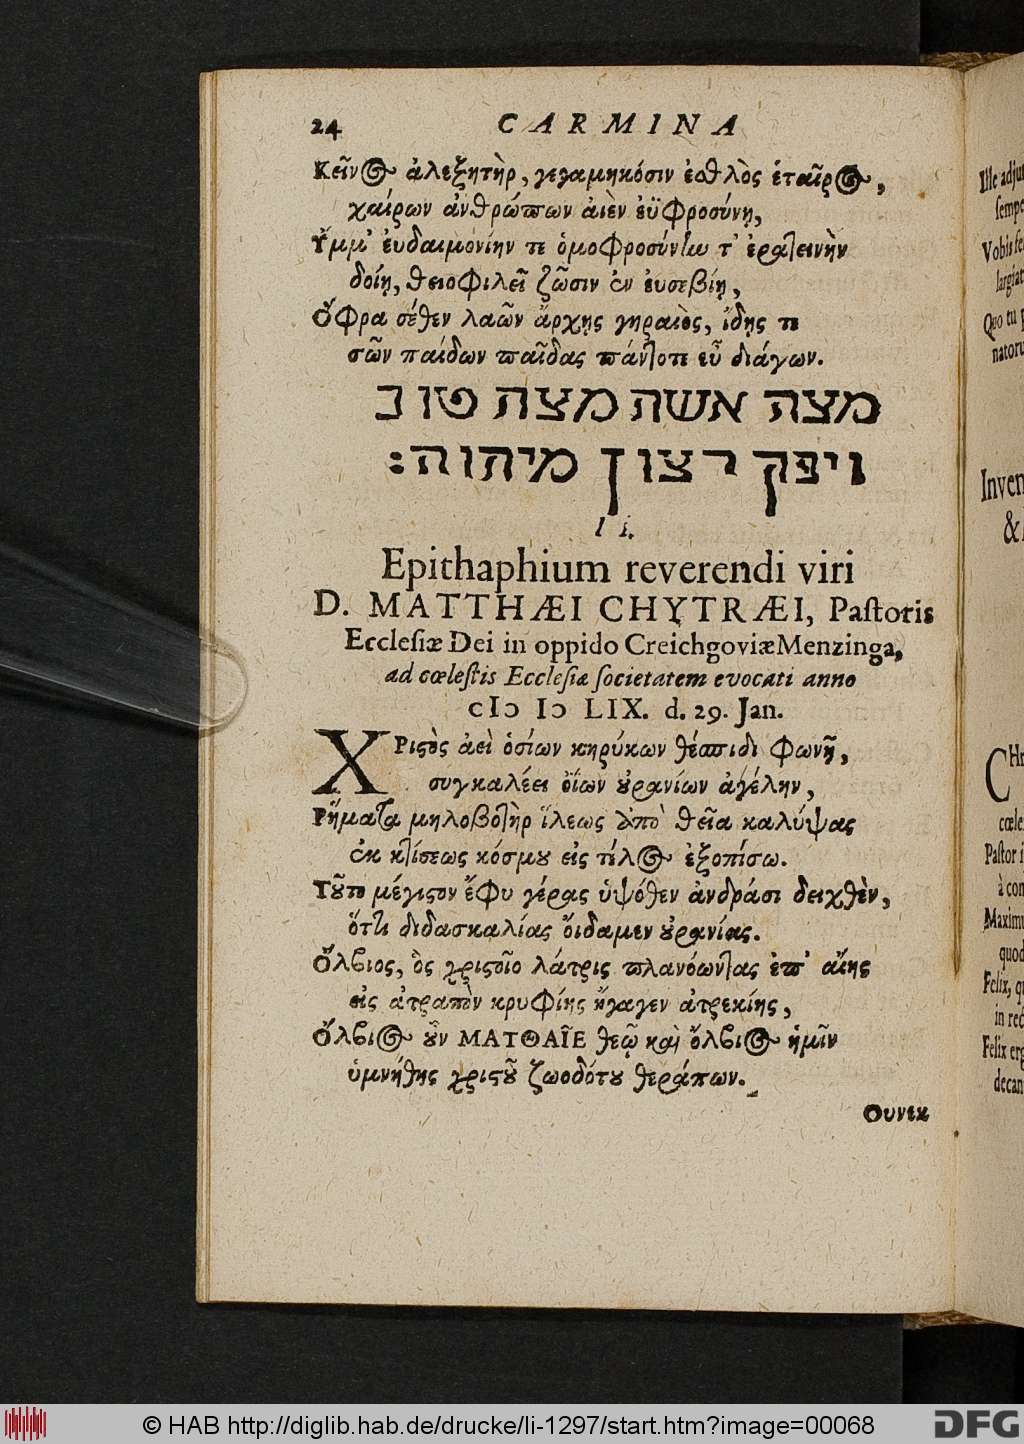 24 CARMINA
Κεῖνος ἀλεξητὴρ, γεγαμηκόσιν ἐσθλὸς ἑταῖρος,
χαίρων ἀνθρώπων ἀιὲν ἐϋφροσύνῃ,
Ὕμμ' ἐυδαιμονίην τε ὁμοφροσύνην τ' ἐρατεινὴν
δοίη, θειοφιλεῖ ζῶσιν ἐν ἐυσεβίῃ,
Ὄφρα σέθεν λαῶν ἄρχῃς γηραιὸς, ἴδῃς τε
σῶν παίδων παῖδας πάντοτε εὖ διάγων.
מצה אשה מצה טוב
ויפק רצון מיהוה:
II.
Epithaphium reverendi viri
D. MATTHÆI CHYTRÆI, Pastoris
Ecclesiæ Dei in oppido Creichgoviæ Menzinga,
ad cœlestis Ecclesiæ societatem evocati anno
cIɔ Iɔ LIX. d. 29. Jan.
ΧΡιστὸς ἀεὶ ὁσίων κηρύκων θέσπιδι φωνῇ,
συγκαλέει ὀΐων οὐρανίων ἀγέλην,
Ρήματα μηλοβοτὴρ ἵλεως ἀπὸ θεῖα καλύψας
ἐκ κτίσεως κόσμου εἰς τέλος ἐξοπίσω.
Τοῦτο μέγιστον ἔφυ γέρας ὑψόθεν ἀνδράσι δειχθὲν,
ὅττι διδασκαλίας οἴδαμεν οὐρανίας.
Ὄλβιος, ὃς χριστοῖο λάτρις πλανόωντας ἐπ' αἴης
εἰς ἀτραπὸν κρυφίης ἤγαγεν ἀτρεκίης,
Ὄλβιος οὖν ΜΑΤΘΑῖΕ θεῷ καὶ ὄλβιος ἡμῖν
ὑμνήθης χριστοῦ ζωοδότου θεράπων.
Ουνεκ
Ille adju
semp
Vobis se
largiat
Quo tu p
natoru
Inven
&
CHr
cœle
Pastor i
à con
Maximu
quod
Felix, q
in rec
Felix erg
decan
© HAB http://diglib.hab.de/drucke/li-1297/start.htm?image=00068
DFG